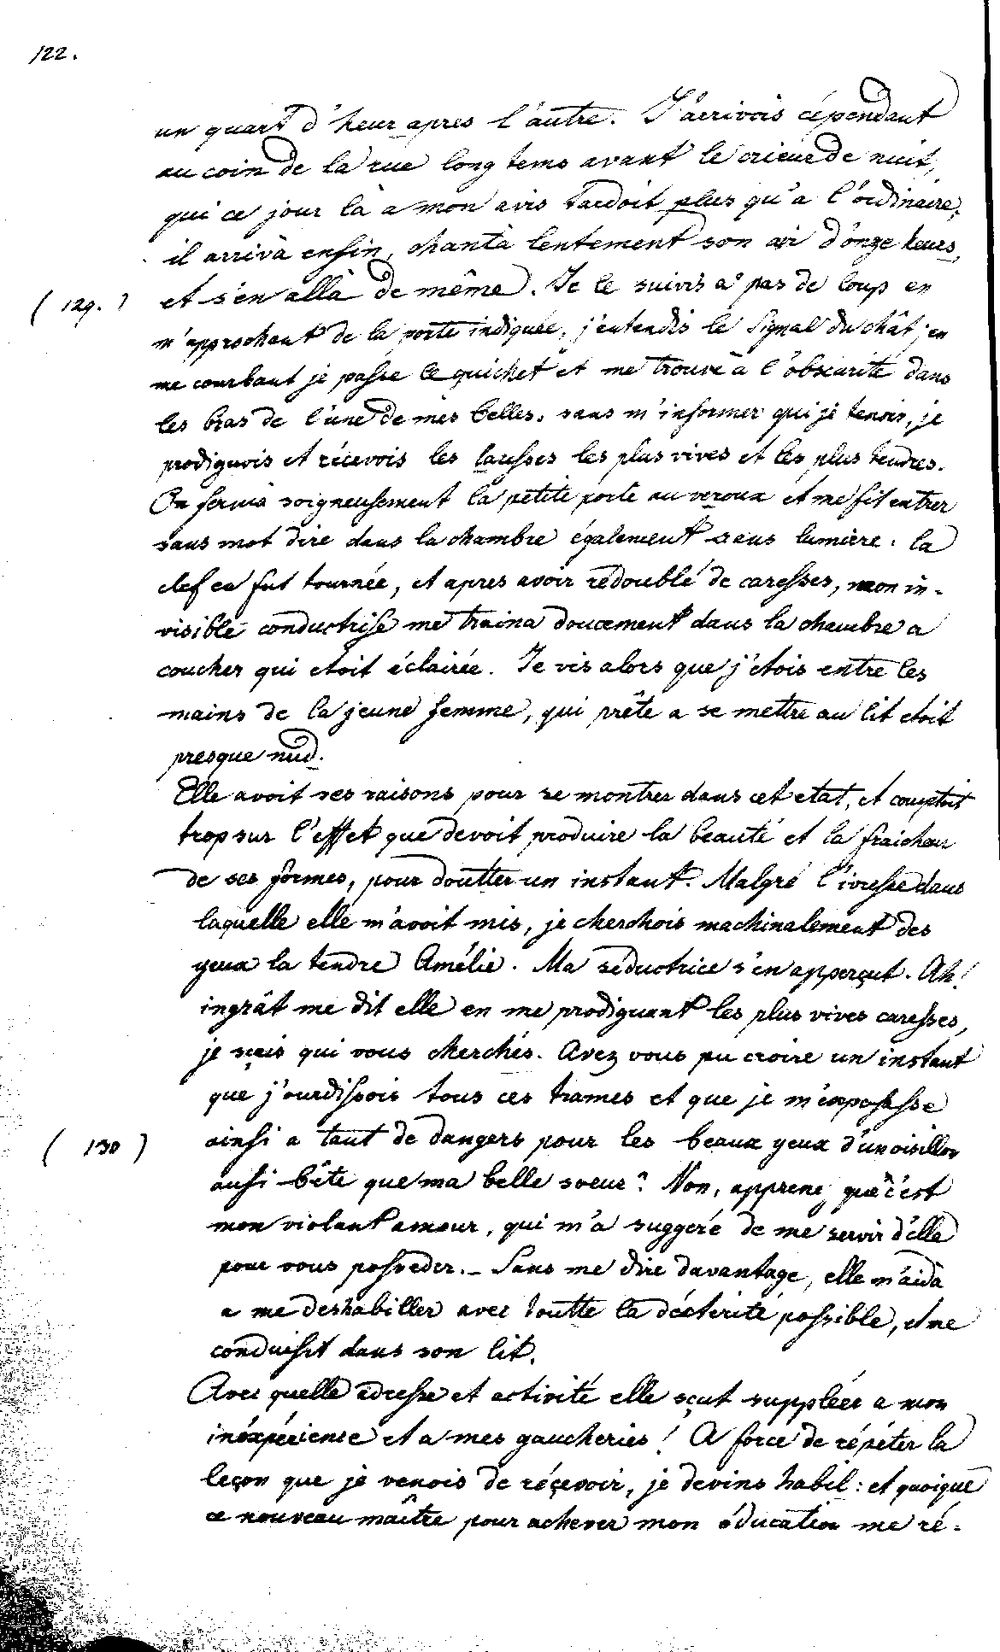 122.
un quart d'heur apres l'autre. J'arrivois cépendant
au coin de la rue long tems avant le crieur de nuit,
qui ce jour là a mon avis tardoit plus qu'a l'ordinaire;
il arrivà enfin, chantà lentement son air d'onze heures,
( 129. ) et s'en allà de même. Je le suivis a pas de loup en
m'approchant de la porte indiquée, j'entendis le signal du chât; en
me courbant je passe le guichet et me trouve à l'obscurité dans
les bras de l'une de mes belles. sans m'informer qui je tenois, je
prodiguois et récevois les caresses les plus vives et les plus tendres.
On ferma soigneusement la petite porte au veroux et me fit entrer
sans mot dire dans la chambre également sans lumière: la
clef en fut tournée, et apres avoir redoublé de caresses, mon in-
visible conductrise me traina doucement dans la chambre a
coucher qui etoit éclairée. Je vis alors que j'étois entre les
mains de la jeune femme, qui prête a se mettre au lit etoit
presque nud.
Elle avoit ses raisons pour se montrer dans cet etat, et comptoit
trop sur l'effet que devoit produire la beauté et la fraicheur
de ses formes, pour doutter un instant. Malgré l'ivresse dans
laquelle elle m'avoit mis, je cherchois machinalement des
yeux la tendre Amélie. Ma séductrice s'en apperçut. Ah!
ingrât me dit elle en me prodiguant les plus vives caresses,
je sçais qui vous cherchés. Avez vous pu croire un instant
que j'ourdissois tous ces trames et que je m'exposasse
( 130 ) ainsi a tant de dangers pour les beaux yeux d'un oisillon
aussi bête que ma belle soeur? Non, apprenez que c'est
mon violant amour, qui m'a suggeré de me servir d'elle
pour vous posseder. – Sans me dire davantage, elle m'aidà
a me deshabiller avec toutte la déxterité possible, et me
conduisit dans son lit.
Avec quelle adresse et activité elle sçut suppléer a mon
inéxpérience et a mes gaucheries! A force de répéter la
leçon que je venois de réçevoir, je devins habil: et quoique
ce nouveau maître pour achever mon éducation me ré-